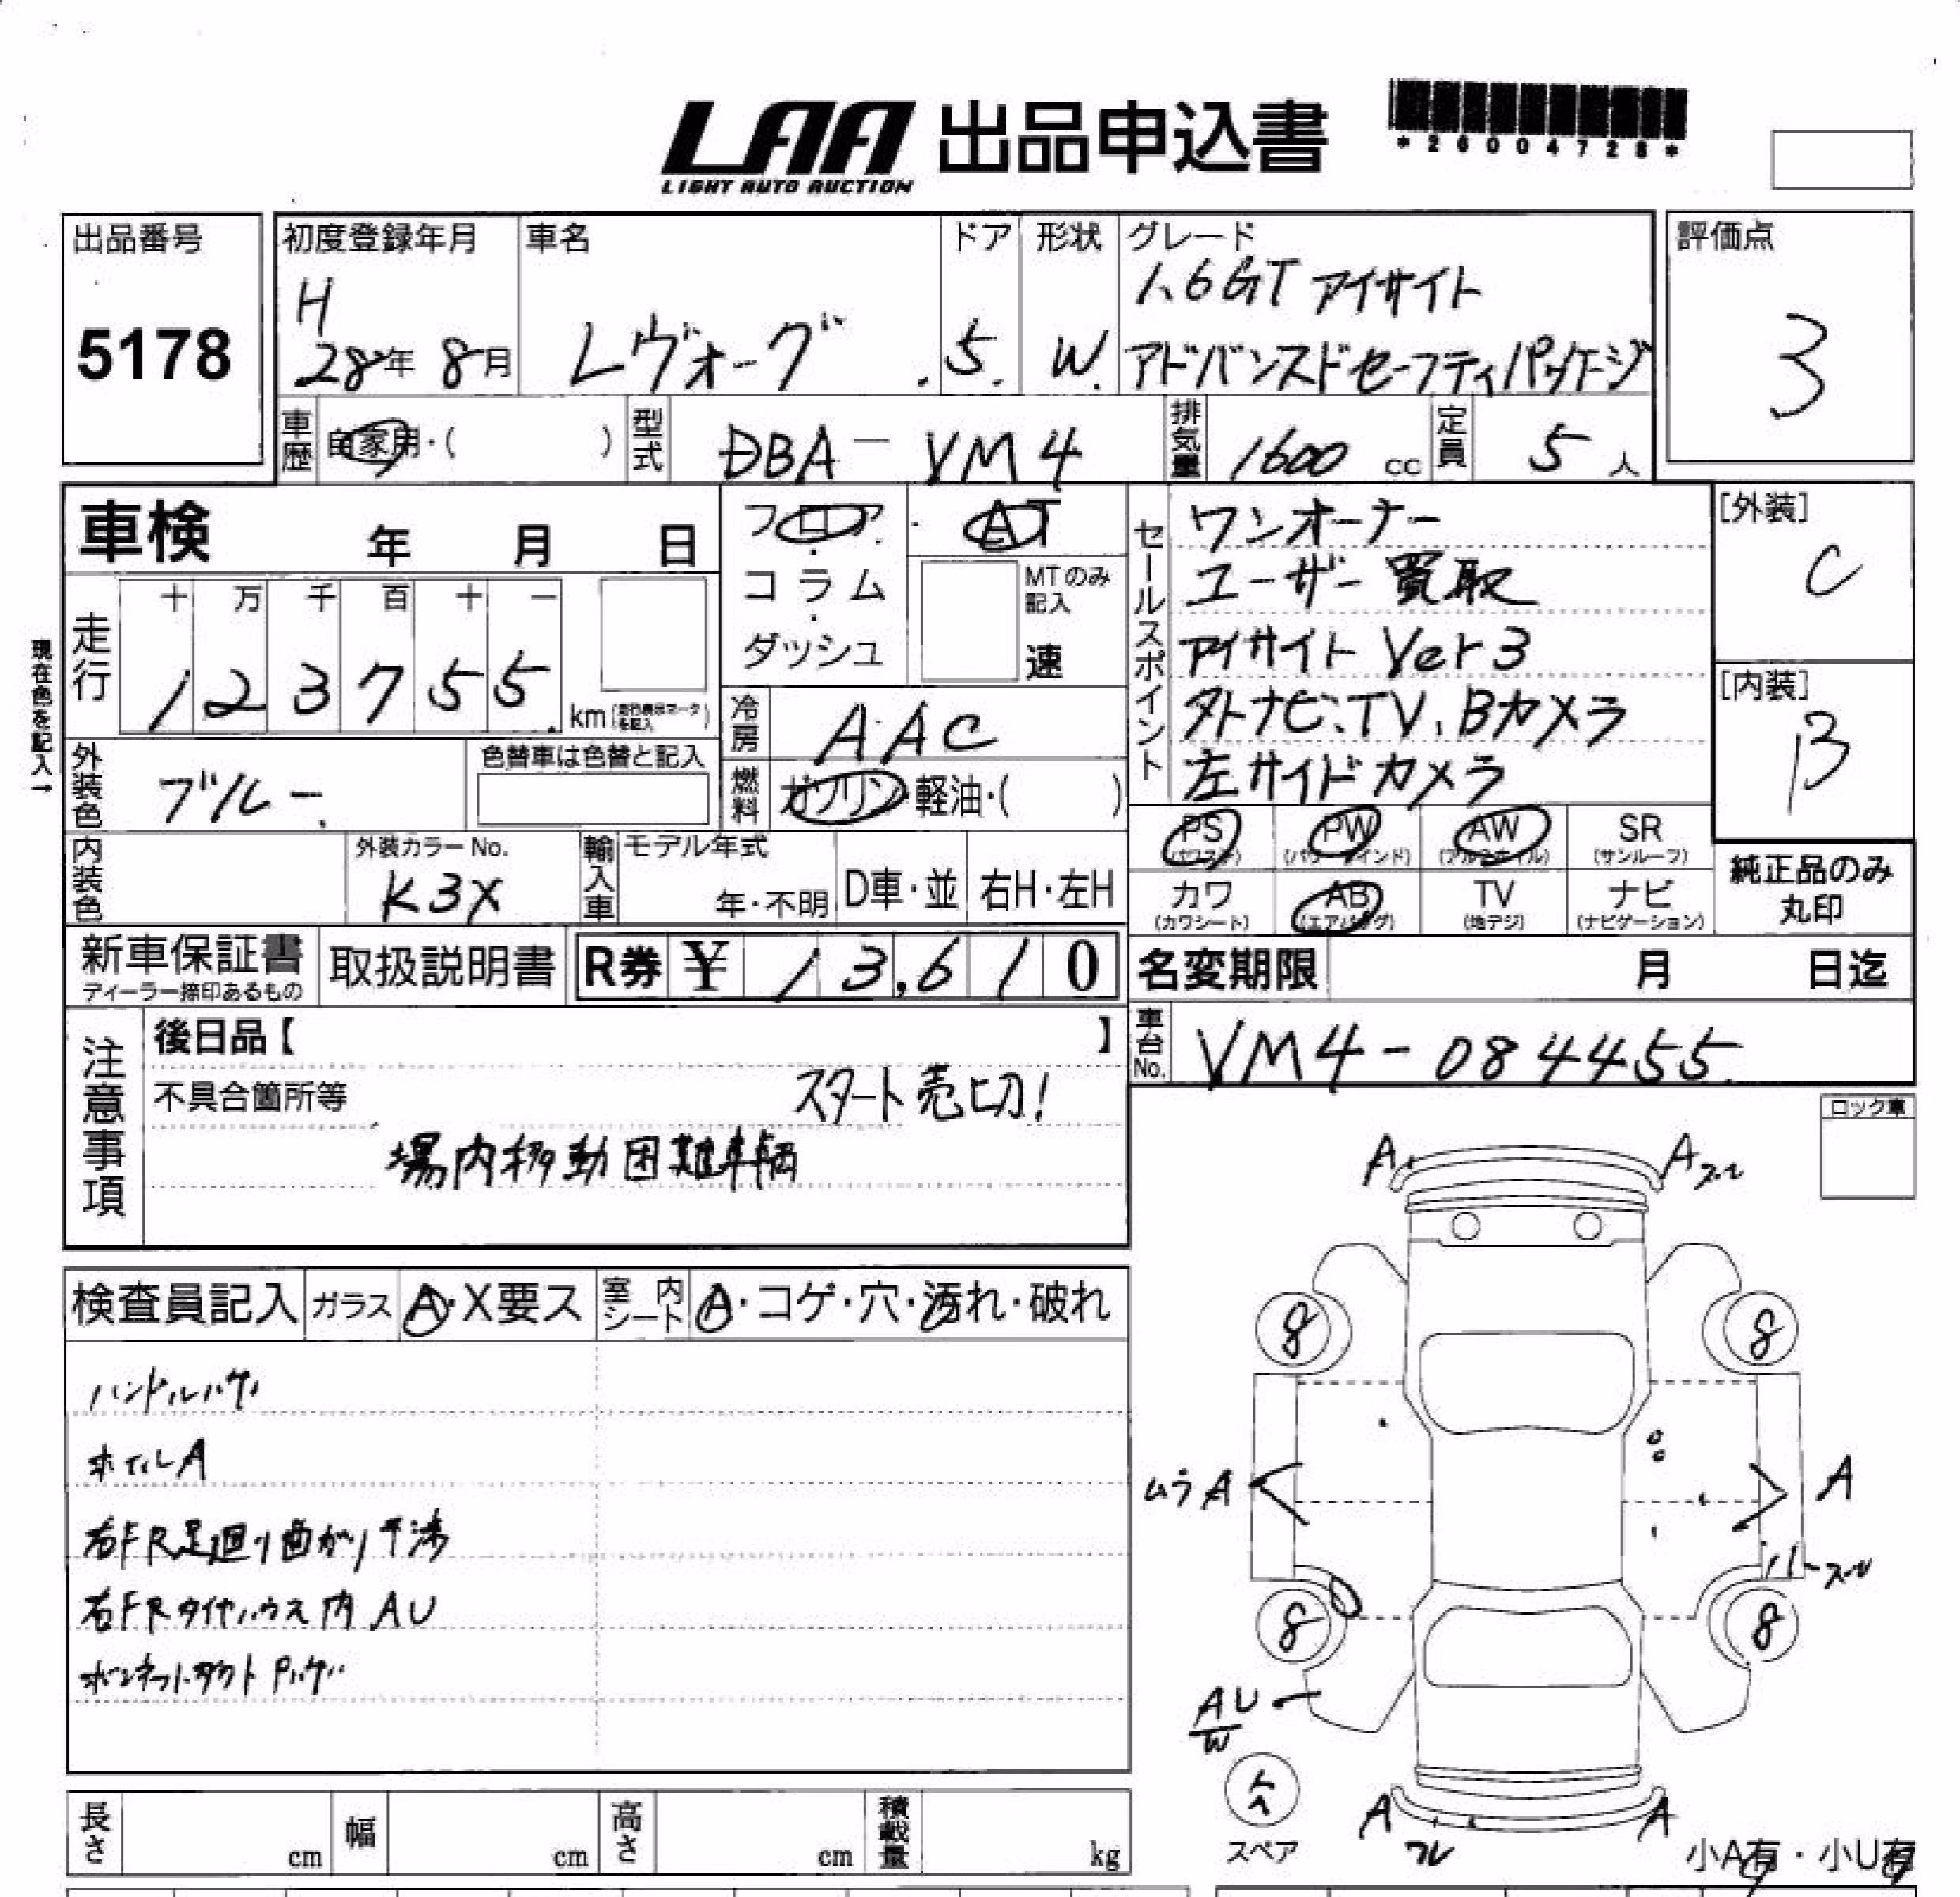 LAA 出品申込書
LIGHT AUTO AUCTION
*26004728*
出品番号
5178
初度登録年月
H
28年 8月
車名
レヴォーグ
ドア
5
形状
W
グレード
1.6GT アイサイト
アドバンスドセーフティパッケージ
評価点
3
車歴 自家用・( )
型式 DBA-VM4
排気量 1600 cc
定員 5 人
車検 年 月 日
フロア・コラム・ダッシュ
AT
MTのみ記入
速
セールスポイント
ワンオーナー
ユーザー買取
アイサイト Ver3
外ナビ、TV、Bカメラ
左サイドカメラ
[外装]
C
[内装]
B
現在色を記入→
走行
十 万 千 百 十 一
1 2 3 7 5 5
km
冷房 AAC
外装色 ブルー
色替車は色替と記入
燃料 ガソリン・軽油・( )
内装色
外装カラーNo.
K3X
輸入車
モデル年式
年・不明
D車・並
右H・左H
PS (パワステ)
PW (パワーウインド)
AW (アルミホイル)
SR (サンルーフ)
カワ (カワシート)
AB (エアバッグ)
TV (地デジ)
ナビ (ナビゲーション)
純正品のみ
丸印
新車保証書
ディーラー捺印あるもの
取扱説明書
R券 ¥ 13,610
名変期限 月 日迄
車台No. VM4-084455
注意事項
後日品【 】
不具合箇所等
スタート売切!
場内移動困難車輌
ロック車
検査員記入
ガラス A・X要ス
室内シート A・コゲ・穴・汚れ・破れ
ハンドルハゲ
ホイルA
右FR足廻り曲がり干渉
右FRタイヤハウス内 AU
ボンネットダクト Pハゲ
A
A
8
8
ムラ A
A
8
8
AU
W
スペア
A
A
小A有・小U有
長さ cm
幅 cm
高さ cm
積載量 kg